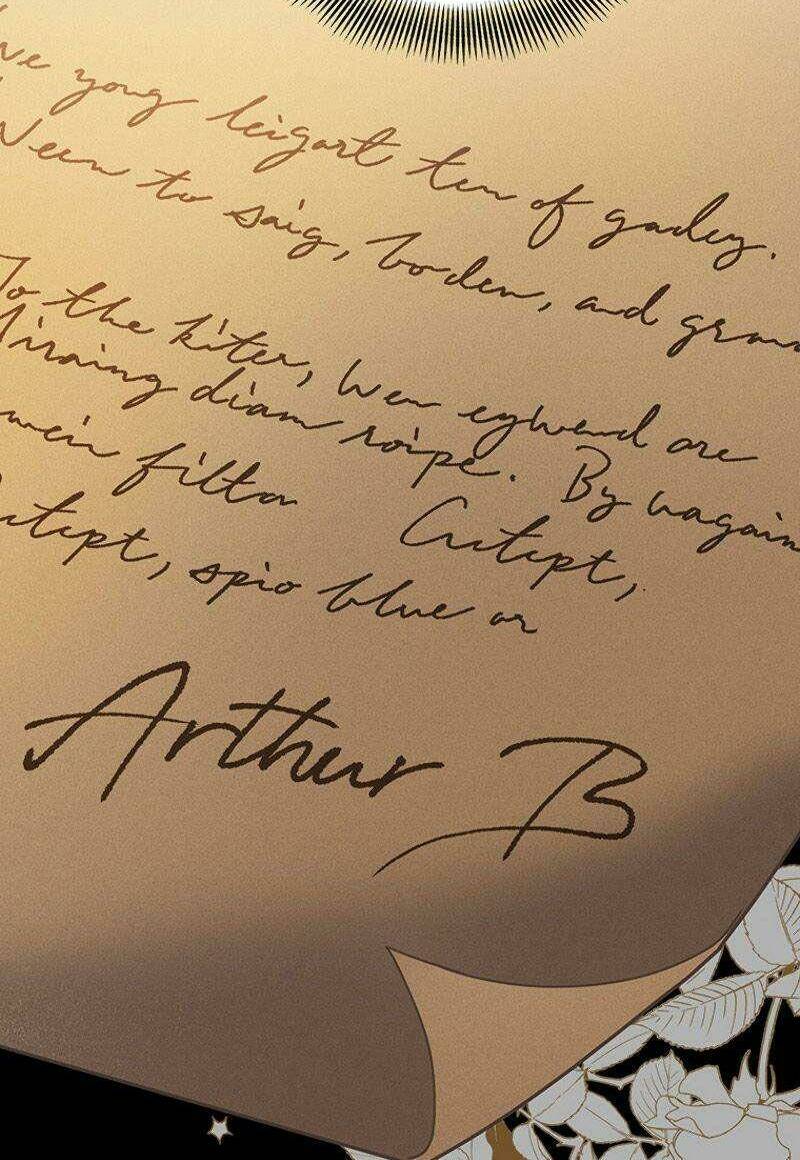 ve yong leigart ten of gadey.
Neen to saig, boden, and gran
To the kiter, Wen eghend are
Miraing diam roipe. By vagain
wein filton Cutept,
utept, spio blue or
Arthur B